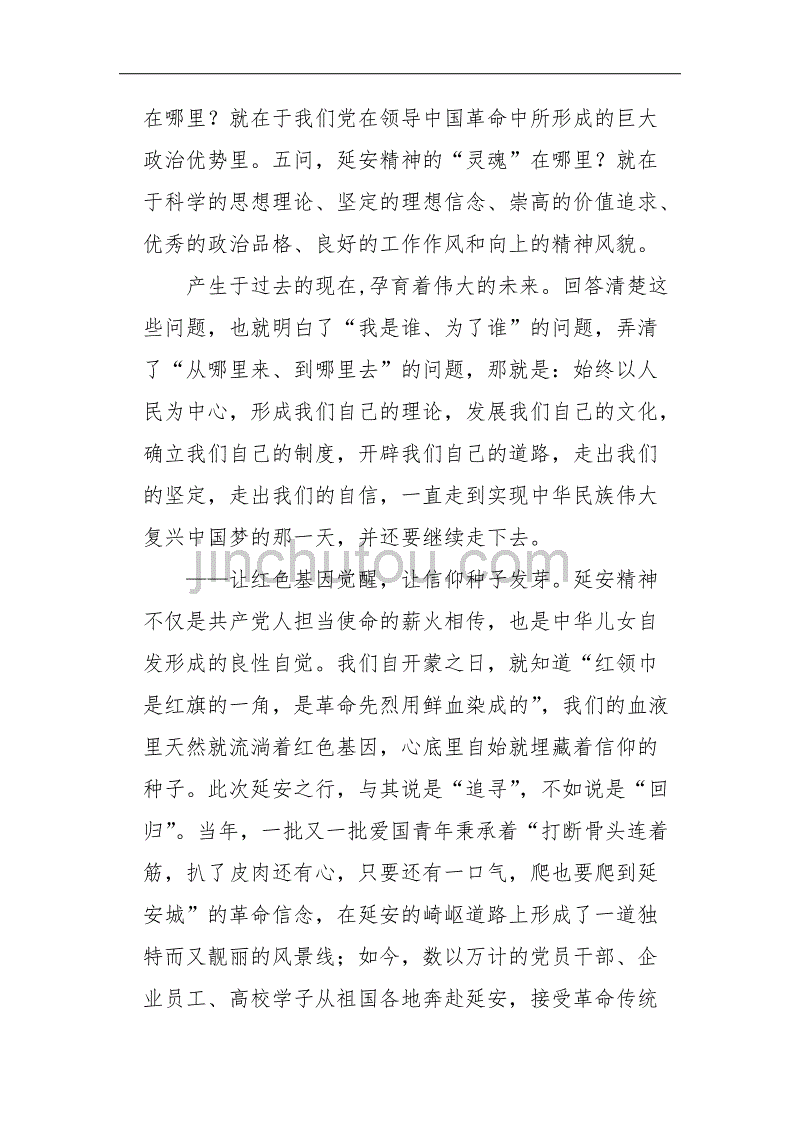 在哪里？就在于我们党在领导中国革命中所形成的巨大
政治优势里。五问，延安精神的“灵魂”在哪里？就在
于科学的思想理论、坚定的理想信念、崇高的价值追求、
优秀的政治品格、良好的工作作风和向上的精神风貌。
产生于过去的现在,孕育着伟大的未来。回答清楚这
些问题，也就明白了“我是谁、为了谁”的问题，弄清
了“从哪里来、到哪里去”的问题，那就是：始终以人
民为中心，形成我们自己的理论，发展我们自己的文化，
确立我们自己的制度，开辟我们自己的道路，走出我们
的坚定，走出我们的自信，一直走到实现中华民族伟大
复兴中国梦的那一天，并还要继续走下去。
jinchutou.com
——让红色基因觉醒，让信仰种子发芽。延安精神
不仅是共产党人担当使命的薪火相传，也是中华儿女自
发形成的良性自觉。我们自开蒙之日，就知道“红领巾
是红旗的一角，是革命先烈用鲜血染成的”，我们的血液
里天然就流淌着红色基因，心底里自始就埋藏着信仰的
种子。此次延安之行，与其说是“追寻”，不如说是“回
归”。当年，一批又一批爱国青年秉承着“打断骨头连着
筋，扒了皮肉还有心，只要还有一口气，爬也要爬到延
安城”的革命信念，在延安的崎岖道路上形成了一道独
特而又靓丽的风景线；如今，数以万计的党员干部、企
业员工、高校学子从祖国各地奔赴延安，接受革命传统